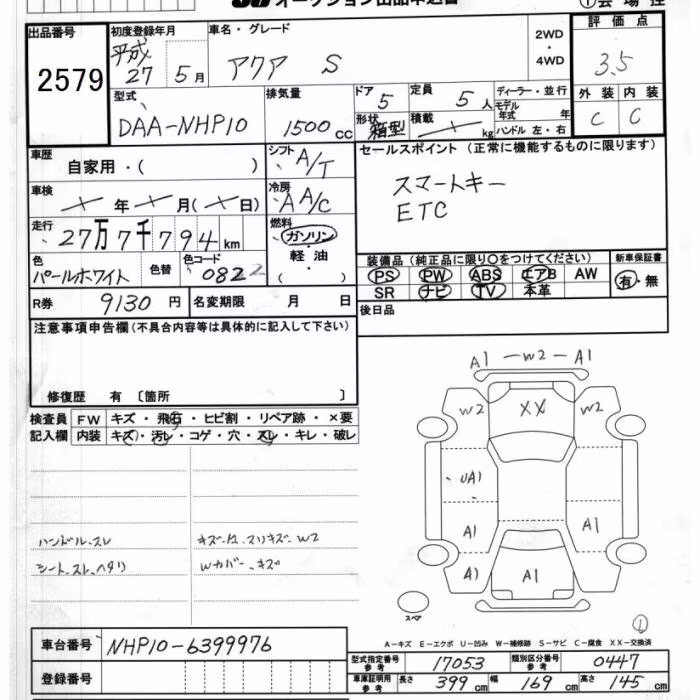 オークション出品申込書
①会場控
出品番号
2579
初度登録年月
平成
27 5月
車名・グレード
アクア S
2WD
・
4WD
評価点
3.5
外装 内装
C C
型式
DAA-NHP10
排気量
1500cc
ドア
5
形状
箱型
定員
5人
積載
kg
ディーラー・並行
モデル
年式 年
ハンドル 左・右
車歴
自家用・( )
シフト
A/T
車検
年 月( 日)
冷房
A A/C
走行
27万7千794km
燃料
ガソリン
軽・油
( )
色
パールホワイト
色替
色コード
082
R券
9130円
名変期限 月 日
セールスポイント(正常に機能するものに限ります)
スマートキー
ETC
装備品(純正品に限り○をつけてください)
PS PW ABS エアB AW
SR ナビ TV 本革
新車保証書
有・無
後日品
注意事項申告欄(不具合内容等は具体的に記入して下さい)
修復歴 有〔箇所 〕
検査員
記入欄
FW キズ・飛石・ヒビ割・リペア跡・×要
内装 キズ・汚レ・コゲ・穴・スレ・キレ・破レ
ハンドル.スレ
シート.スレ.ヘタリ
キズ.スリキズ.W2
Wカバー.キズ
A1-W2-A1
W2
XX
W2
UA1
A1
A1
A)
A1
スペア
①
A-キズ E-エクボ U-凹み W-補修跡 S-サビ C-腐食 XX-交換済
車台番号
NHP10-6399976
登録番号
型式指定番号
参考
17053
類別区分番号
参考
0447
車庫証明用
参考
長さ 399cm 幅 169cm 高さ 145cm